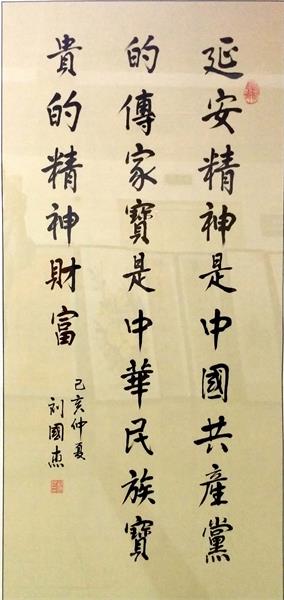 延安精神是中國共產黨
的傳家寶是中華民族寶
貴的精神財富
己亥仲夏
刘國杰